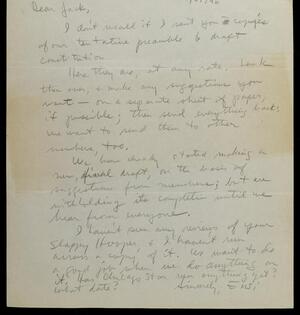 Dear Jack,
I don't recall if I sent you copies
of our tentative preamble & draft
constitution.
Here they are, at any rate. Look
them over, & make any suggestions you
want — on a separate sheet of paper,
if possible; then send everything back;
we want to send them to other
members, too.
We have already started making a
new, draft, on the basis of
suggestions from members; but are
withholding its completion until we
hear from everyone.
I haven't seen any reviews of your
Slappy Hooper, & I haven't run
across a copy of it. We want to do
a good job when we do anything on
it. Has Chicago Sun run anything yet?
What date?
Sincerely,